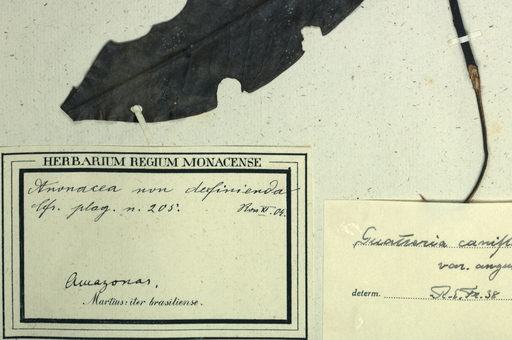 HERBARIUM REGIUM MONACENSE
Anonacea non definienda
Cfr. plag. n. 205.
Amazonas.
Martius: iter brasiliense.
Guatteria
var.
determ. R. E. Fr. 38